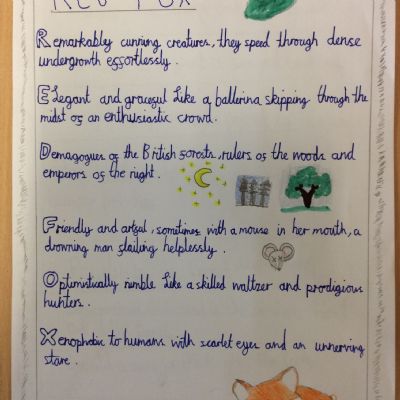 RED FOX
Remarkably cunning creatures, they speed through dense
undergrowth effortlessly.
Elegant and graceful like a ballerina skipping through the
midst of an enthusiastic crowd.
Demagogues of the British forests, rulers of the woods and
emperors of the night.
Friendly and artful, sometimes with a mouse in her mouth, a
drowning man flailing helplessly.
Optimistically nimble like a skilled waltzer and prodigious
hunters.
Xenophobic to humans with scarlet eyes and an unnerving
stare.